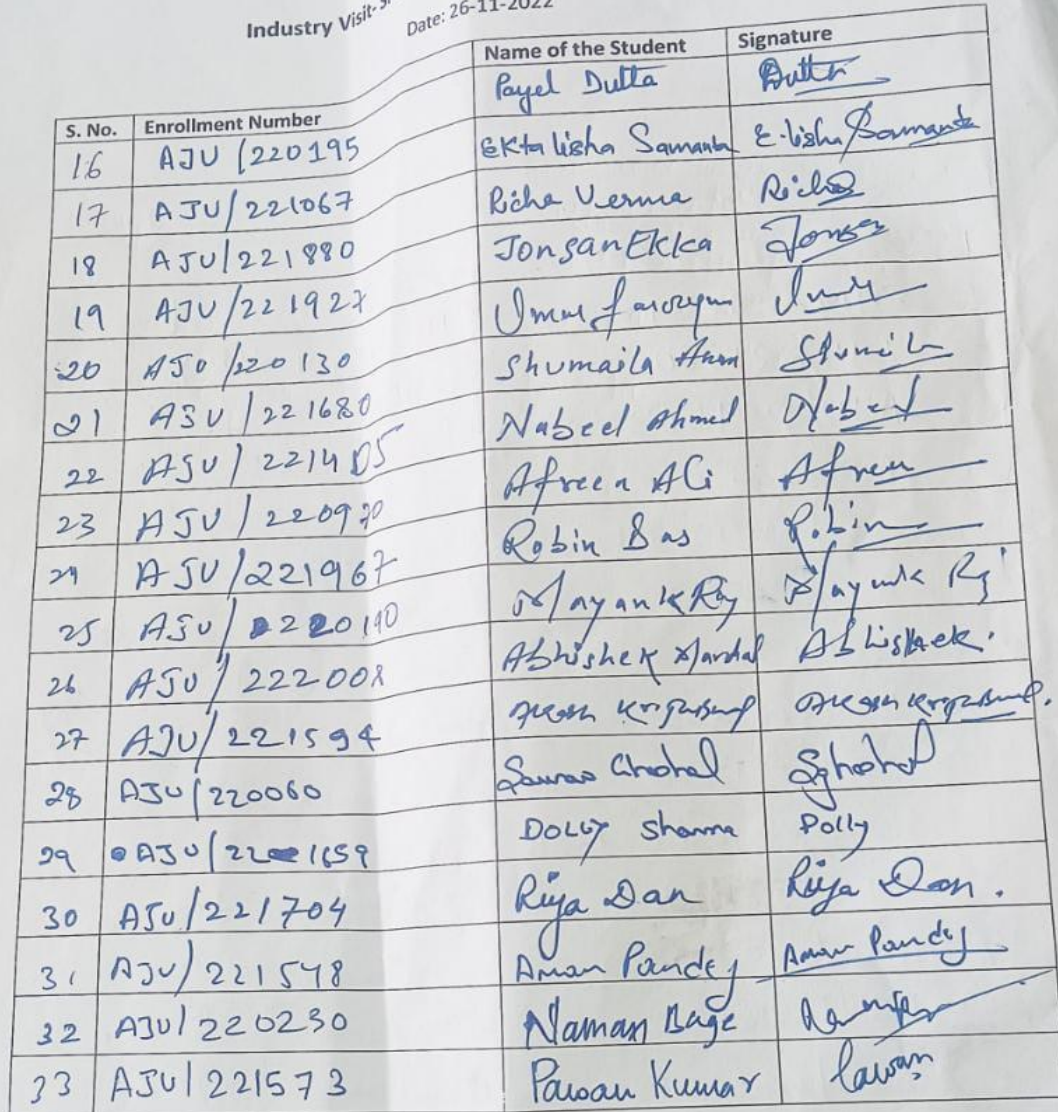 Industry Visit-
Date: 26-11-2022
S. No. Enrollment Number Name of the Student Signature
16 AJU/220195 Payel Dutta Dutta
17 AJU/221067 Ekta lisha Samanta E. lisha Samanta
18 AJU/221880 Richa Verma Richa
19 AJU/221927 Jonsan Ekka Jonsan
20 AJU/220130
21 AJU/221680 Shumaila
22 AJU/221405 Nabeel Ahmed Nabeel
23 AJU/220970 Afreen Ali Afreen
24 AJU/221967 Robin Das Robin
25 AJU/220190 Mayank Raj Mayank Raj
26 AJU/222008 Abhishek Mandal Abhishek.
27 AJU/221594 Akash Akash
28 AJU/220060 Saurav Ghoshal SGhoshal
29 AJU/221659 DOLLY Sharma Dolly
30 AJU/221704 Riya Dan Riya Dan.
31 AJU/221548 Aman Pandey Aman Pandey
32 AJU/220230 Naman Bage
33 AJU/221573 Pawan Kumar Pawan